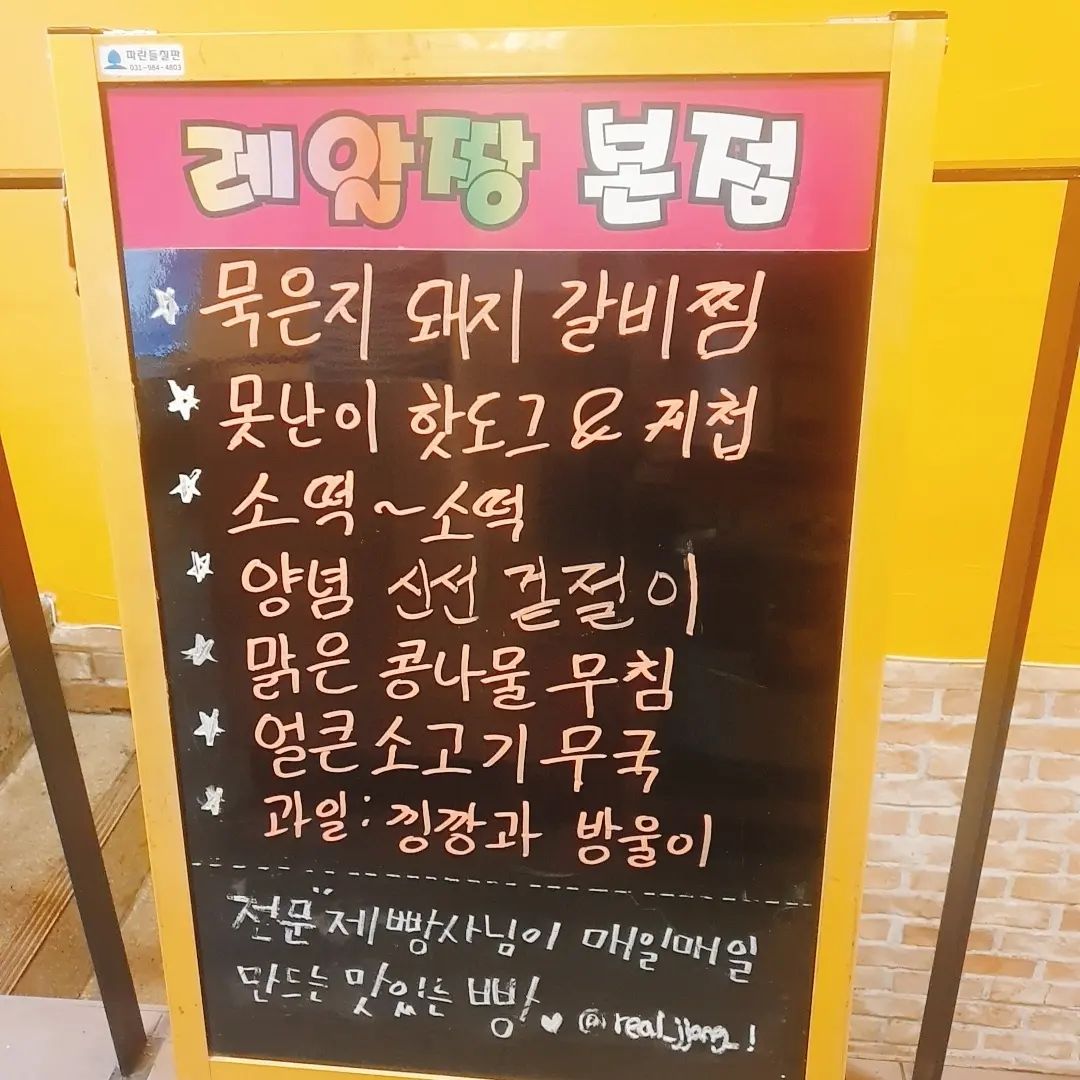 파란들칠판
031-984-4803
레알짱 본점
묵은지 돼지 갈비찜
못난이 핫도그 & 케첩
소떡~소떡
양념 신선 겉절이
맑은 콩나물 무침
얼큰 소고기 무국
과일: 낑깡과 방울이
전문 제빵사님이 매일매일
만드는 맛있는 빵 ♥ @real_jjang !